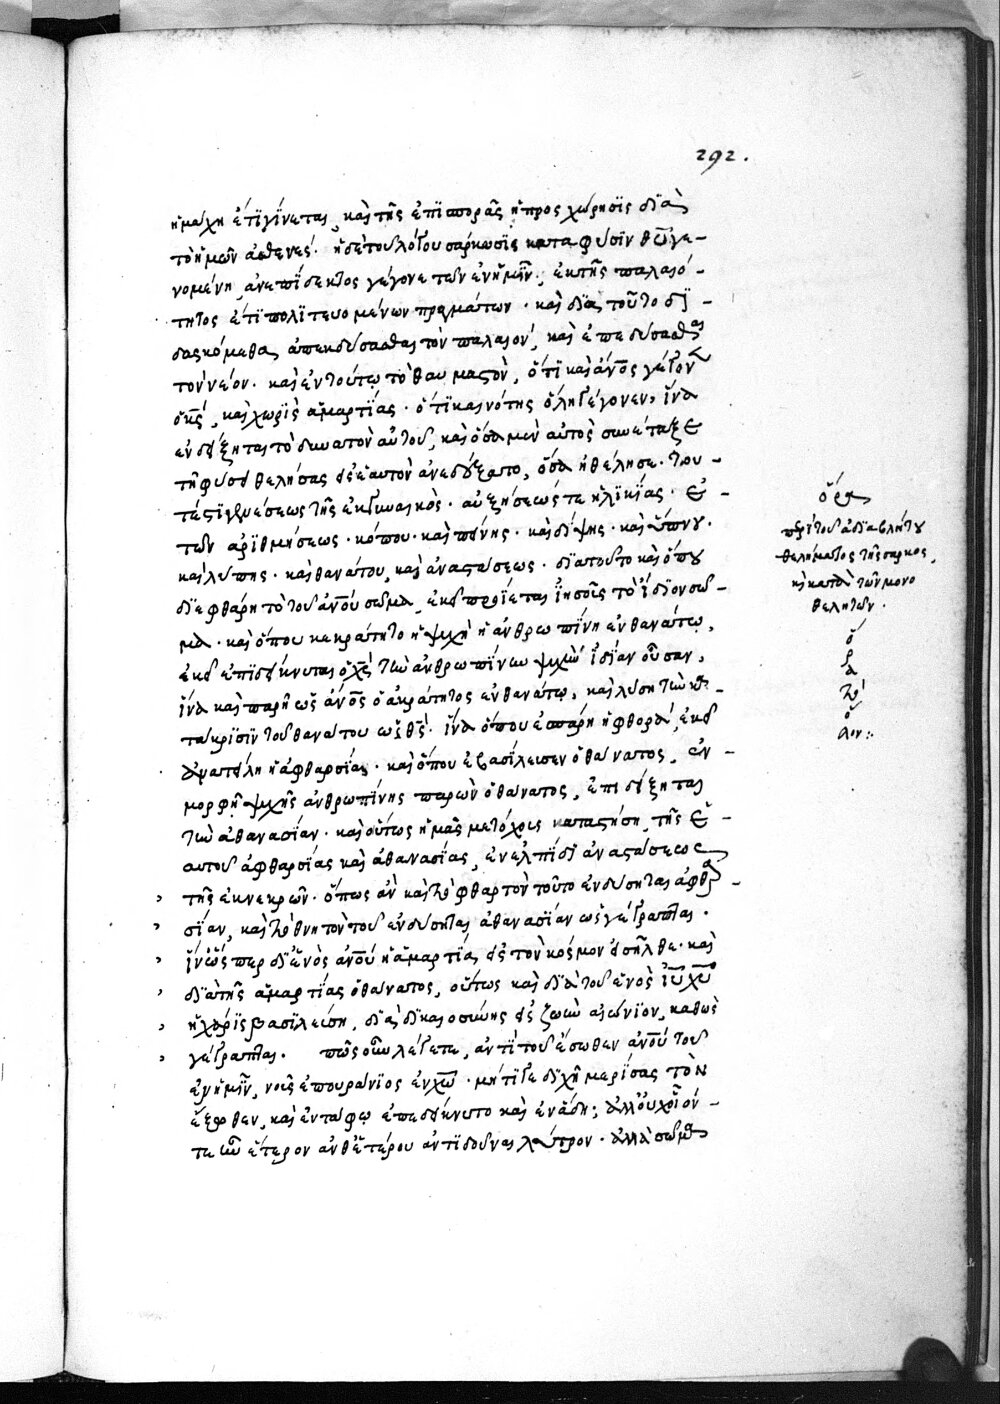 292.
ἡ μάχη ἐπιγίνεται, καὶ τῆς ἐπισπορᾶς ἡ προσχώρησϊς διὰ
τὸ ἡμῶν ἀσθενές. ἡ δὲ τοῦ λόγου σάρκωσϊς κατα φύσϊν θῦ γε-
νομένη, ἀνεπίδεκτος γέγονε τῶν ἐν ἡμῖν, ἐκ τῆς παλαιό-
τητος ἐπιπολϊτευομένων πραγμάτων. καὶ διὰ τοῦτο δϊ-
δασκόμεθα ἀπεκδύσασθαι τὸν παλαιόν, καὶ ἐπενδύσασθαι
τὸν νέον. καὶ ἐν τούτῳ τὸ θαυμαστὸν, ὅτι καὶ ἄνος γέγονεν
ὁ κς, καὶ χωρὶς ἁμαρτίας. ὅτι καινότης ὅλη γέγονεν, ἵνα
ἐνδείξηται τὸ δυνατὸν αὐτοῦ, καὶ ὅσα μὲν αὐτὸς συνέταξε
τῇ φύσει θελήσας εἰς ἑαυτὸν ἀνεδέξατο, ὅσα ἠθέλησε. του-
τέστι γεννέσεως τῆς ἐκ γυναικός. αὐξήσεώς τε ἡλικίας. ἐ-
τῶν ἀριθμήσεως. κόπου. καὶ πείνης. καὶ δίψης. καὶ ὕπνου.
καὶ λύπης. καὶ θανάτου, καὶ ἀναστάσεως. διατοῦτο καὶ ὅπου
διεφθάρη τὸ τοῦ ἀνου σῶμα, ἐκεῖ προΐεται ἰησοῦς τὸ ἴδιον σῶ-
μα. καὶ ὅπου κεκράτητο ἡ ψυχὴ ἡ ἀνθρωπίνη ἐν θανάτῳ,
ἐκεῖ ἐπιδείκνυται ὁ χς τὴν ἀνθρωπίνην ψυχὴν ἰδίαν οὖσαν,
ἵνα καὶ παρῇ ὡς ἄνος ὁ ἀκράτητος ἐν θανάτῳ, καὶ λύσῃ τὴν κα-
τακρισϊν τοῦ θανάτου ὡς θς. ἵνα ὅπου ἐσπάρη ἡ φθορά, ἐκεῖ
ἀνατείλῃ ἡ ἀφθαρσία. καὶ ὅπου ἐβασίλευσεν ὁ θάνατος, ἐν
μορφῇ ψυχῆς ἀνθρωπίνης παρὼν ὁ θάνατος, ἐπιδείξηται
τὴν ἀθανασίαν. καὶ οὕτως ἡμᾶς μετόχους καταστήσῃ, τῆς ἑ-
αυτοῦ ἀφθαρσίας καὶ ἀθανασίας, ἐν ἐλπίδι ἀναστάσεως
τῆς ἐκ νεκρῶν. ὅπως ἂν καὶ τὸ φθαρτὸν τοῦτο ἐνδύσηται ἀφθαρ-
σίαν, καὶ τὸ θνητὸν τοῦτο ἐνδύσηται ἀθανασίαν ὡς γέγραπται.
ἵν' ὥσπερ δι' ἑνὸς ἀνου ἡ ἁμαρτία εἰς τὸν κόσμον εἰσῆλθε. καὶ
διὰ τῆς ἁμαρτίας ὁ θάνατος, οὕτως καὶ διὰ τοῦ ἑνὸς ιυ χυ
ἡ χάρις βασιλεύσῃ, διὰ δικαιοσύνης εἰς ζωὴν αἰώνιον, καθὼς
γέγραπται. πῶς οὖν λέγετε, ἀντὶ τοῦ ἔσωθεν ἀνου τοῦ
ἐν ἡμῖν, νοῦς ἐπουράνιος ἐν χω. μή τι γε διχῆ μερίσας τὸν
ἔξωθεν, καὶ ἐν ταφῷ ἐπεδείκνυτο καὶ ἐν ᾅδῃ; ἀλλ' οὐχ οἷόν-
τε ἦν ἕτερον ἀνθ' ἑτέρου ἀντιδοῦναι λύτρον. ἀλλὰ σῶμα
ὅρα
περὶ τοῦ ἀδιαβλήτου
θελήματος τῆς σαρκός,
κὶ κατὰ τῶν μονο
θελητῶν.
ὅ
ρ
α
τὸ
ὅ
λον:.